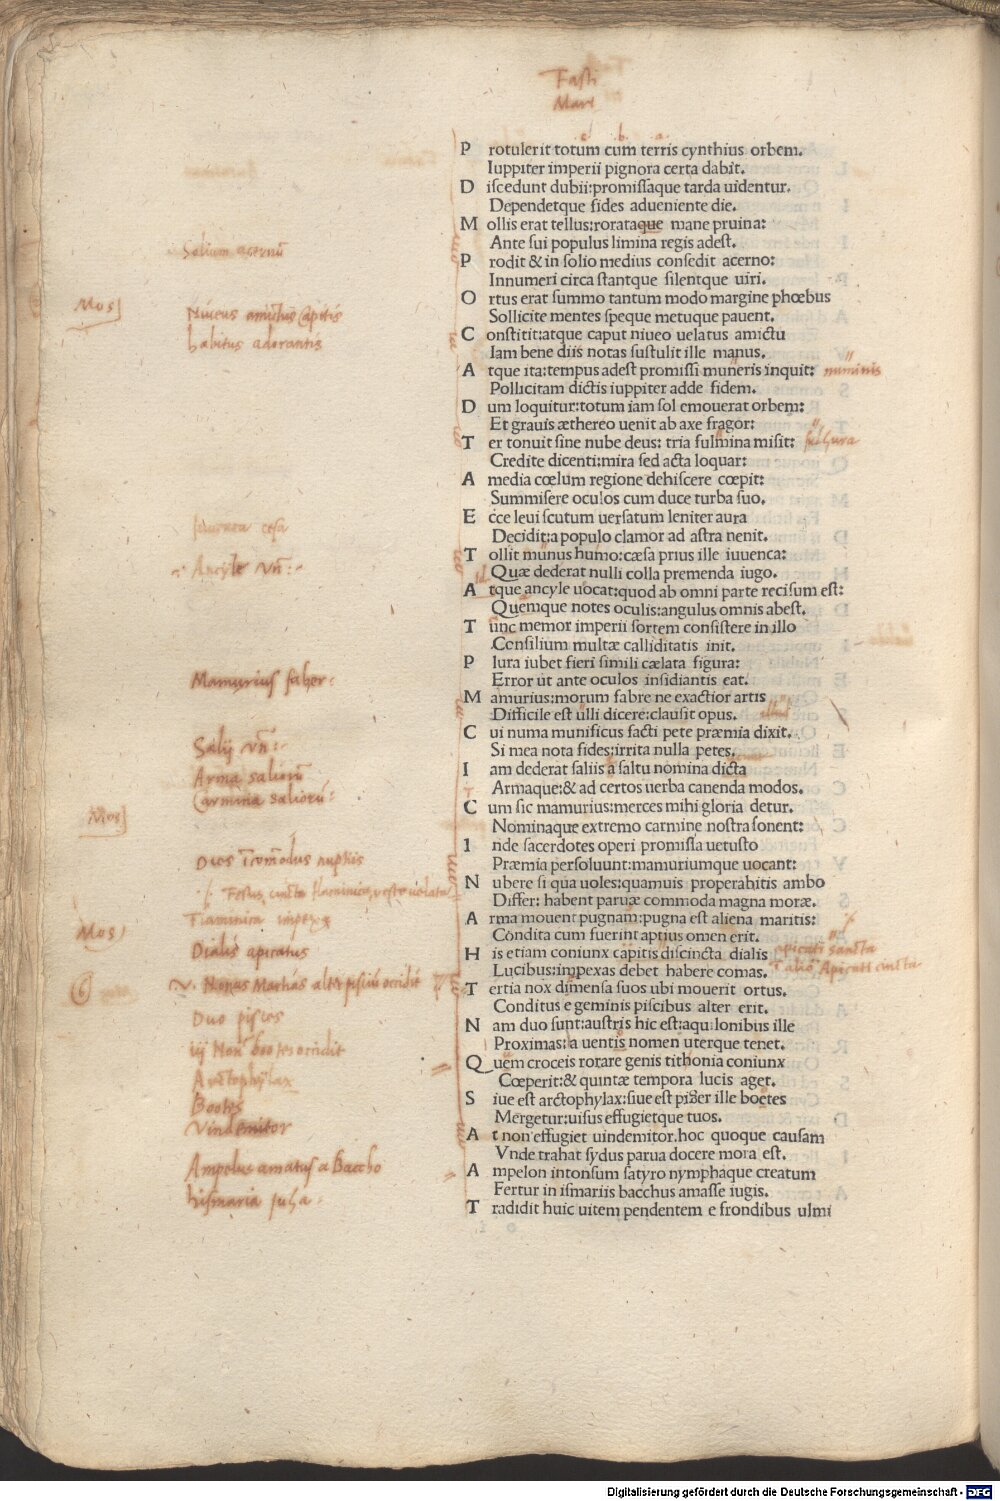 Fasti
Mart
P rotulerit totum cum terris cynthius orbem.
Iuppiter imperii pignora certa dabit.
D iscedunt dubii:promissaque tarda uidentur.
Dependetque fides adueniente die.
M ollis erat tellus:rorataque mane pruina:
Ante sui populus limina regis adest.
P rodit & in solio medius consedit acerno:
Innumeri circa stantque silentque uiri.
O rtus erat summo tantum modo margine phœbus
Sollicite mentes speque metuque pauent.
C onstitit:atque caput niueo uelatus amictu
Iam bene diis notas sustulit ille manus.
A tque ita:tempus adest promissi muneris inquit: numinis
Pollicitam dictis iuppiter adde fidem.
D um loquitur:totum iam sol emouerat orbem:
Et grauis æthereo uenit ab axe fragor:
T er tonuit sine nube deus: tria fulmina misit: fulgura
Credite dicenti:mira sed acta loquar:
A media cœlum regione dehiscere cœpit:
Summisere oculos cum duce turba suo.
E cce leui scutum uersatum leniter aura
Decidit:a populo clamor ad astra nenit.
T ollit munus humo:cæsa prius ille iuuenca:
Quæ dederat nulli colla premenda iugo.
A tque ancyle uocat:quod ab omni parte recisum est:
Quemque notes oculis:angulus omnis abest.
T unc memor imperii sortem consistere in illo
Consilium multæ calliditatis init.
P lura iubet fieri simili cælata figura:
Error ut ante oculos insidiantis eat.
M amurius:morum fabre ne exactior artis
Difficile est ulli dicere:clausit opus.
C ui numa munificus facti pete præmia dixit.
Si mea nota fides:irrita nulla petes.
I am dederat saliis a saltu nomina dicta
Armaque:& ad certos uerba canenda modos.
C um sic mamurius:merces mihi gloria detur.
Nominaque extremo carmine nostra sonent:
I nde sacerdotes operi promissa uetusto
Præmia persoluunt:mamuriumque uocant:
N ubere si qua uoles:quamuis properabitis ambo
Differ: habent paruæ commoda magna moræ.
A rma mouent pugnam:pugna est aliena maritis:
Condita cum fuerint aptius omen erit.
H is etiam coniunx capitis discincta dialis apicati sancta
Lucibus:impexas debet habere comas. Apicati cincta
T ertia nox dimensa suos ubi mouerit ortus.
Conditus e geminis piscibus alter erit.
N am duo sunt:austris hic est:aquilonibus ille
Proximas:a uentis nomen uterque tenet.
Q uem croceis rorare genis tithonia coniunx
Cœperit:& quintæ tempora lucis aget.
S iue est arctophylax:siue est piger ille boetes
Mergetur:uisus effugietque tuos.
A t non effugiet uindemitor.hoc quoque causam
Vnde trahat sydus parua docere mora est.
A mpelon intonsum satyro nymphaque creatum
Fertur in ismariis bacchus amasse iugis.
T radidit huic uitem pendentem e frondibus ulmi
Solium acernū
Mos
Niueus amictus Capitis
habitus adorantis
Ancyle vñ:
Mamurius faber:
Salij vñ:
Arma saliorū
Carmina saliorū:
Mos
Dies Incom̄odus nuptiis
Flaminica impexa
Mos
Dialis apicatus
6
V. Nonas Martias alter pisciū occidit
Duo pisces
iij Non bootes occidit
Arctophylax
Bootes
Vindemitor
Ampelus amatus a Baccho
hismaria juga
Digitalisierung gefördert durch die Deutsche Forschungsgemeinschaft - DFG